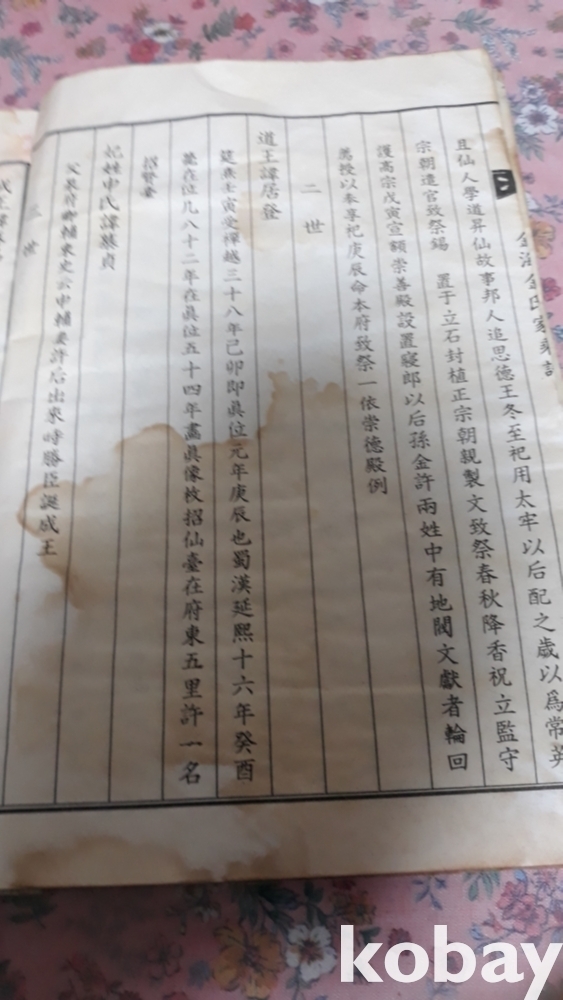 金海金氏家乘記
且仙人學道昇仙故事邦人追思德王冬至祀用太牢以后配之歲以爲常英
宗朝遣官致祭錫 置于立石封植正宗朝親製文致祭春秋降香祝立監守
護高宗戊寅宣額崇善殿設置寢郎以后孫金許兩姓中有地閥文獻者輪回
薦授以奉享祀庚辰命本府致祭一依崇德殿例
二世
道王諱居登
建燕壬寅受禪越三十八年己卯即眞位元年庚辰也蜀漢延熙十六年癸酉
薨在位凡八十二年在眞位五十四年畵眞像於招仙臺在府東五里許一名
招賢臺
妃姓申氏諱慕貞
父泉府卿輔東史云申輔妻許后出來時勝臣誕成王
三世
成王諱
kobay